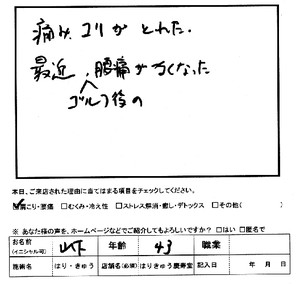 痛み、コリがとれた.
最近、腰痛がなくなった
ゴルフ後の
本日、ご来店された理由に当てはまる項目をチェックしてください。
☑肩こり・腰痛 □むくみ・冷え性 □ストレス解消・癒し・デトックス □その他( )
※ あなた様の声を、ホームページなどでご紹介してもよろしいですか?□はい □匿名で
お名前(イニシャル可) 山下 年齢 43 職業
施術名 はり・きゅう 店舗名(必須) はりきゅう慶寿堂 記入日 年 月 日